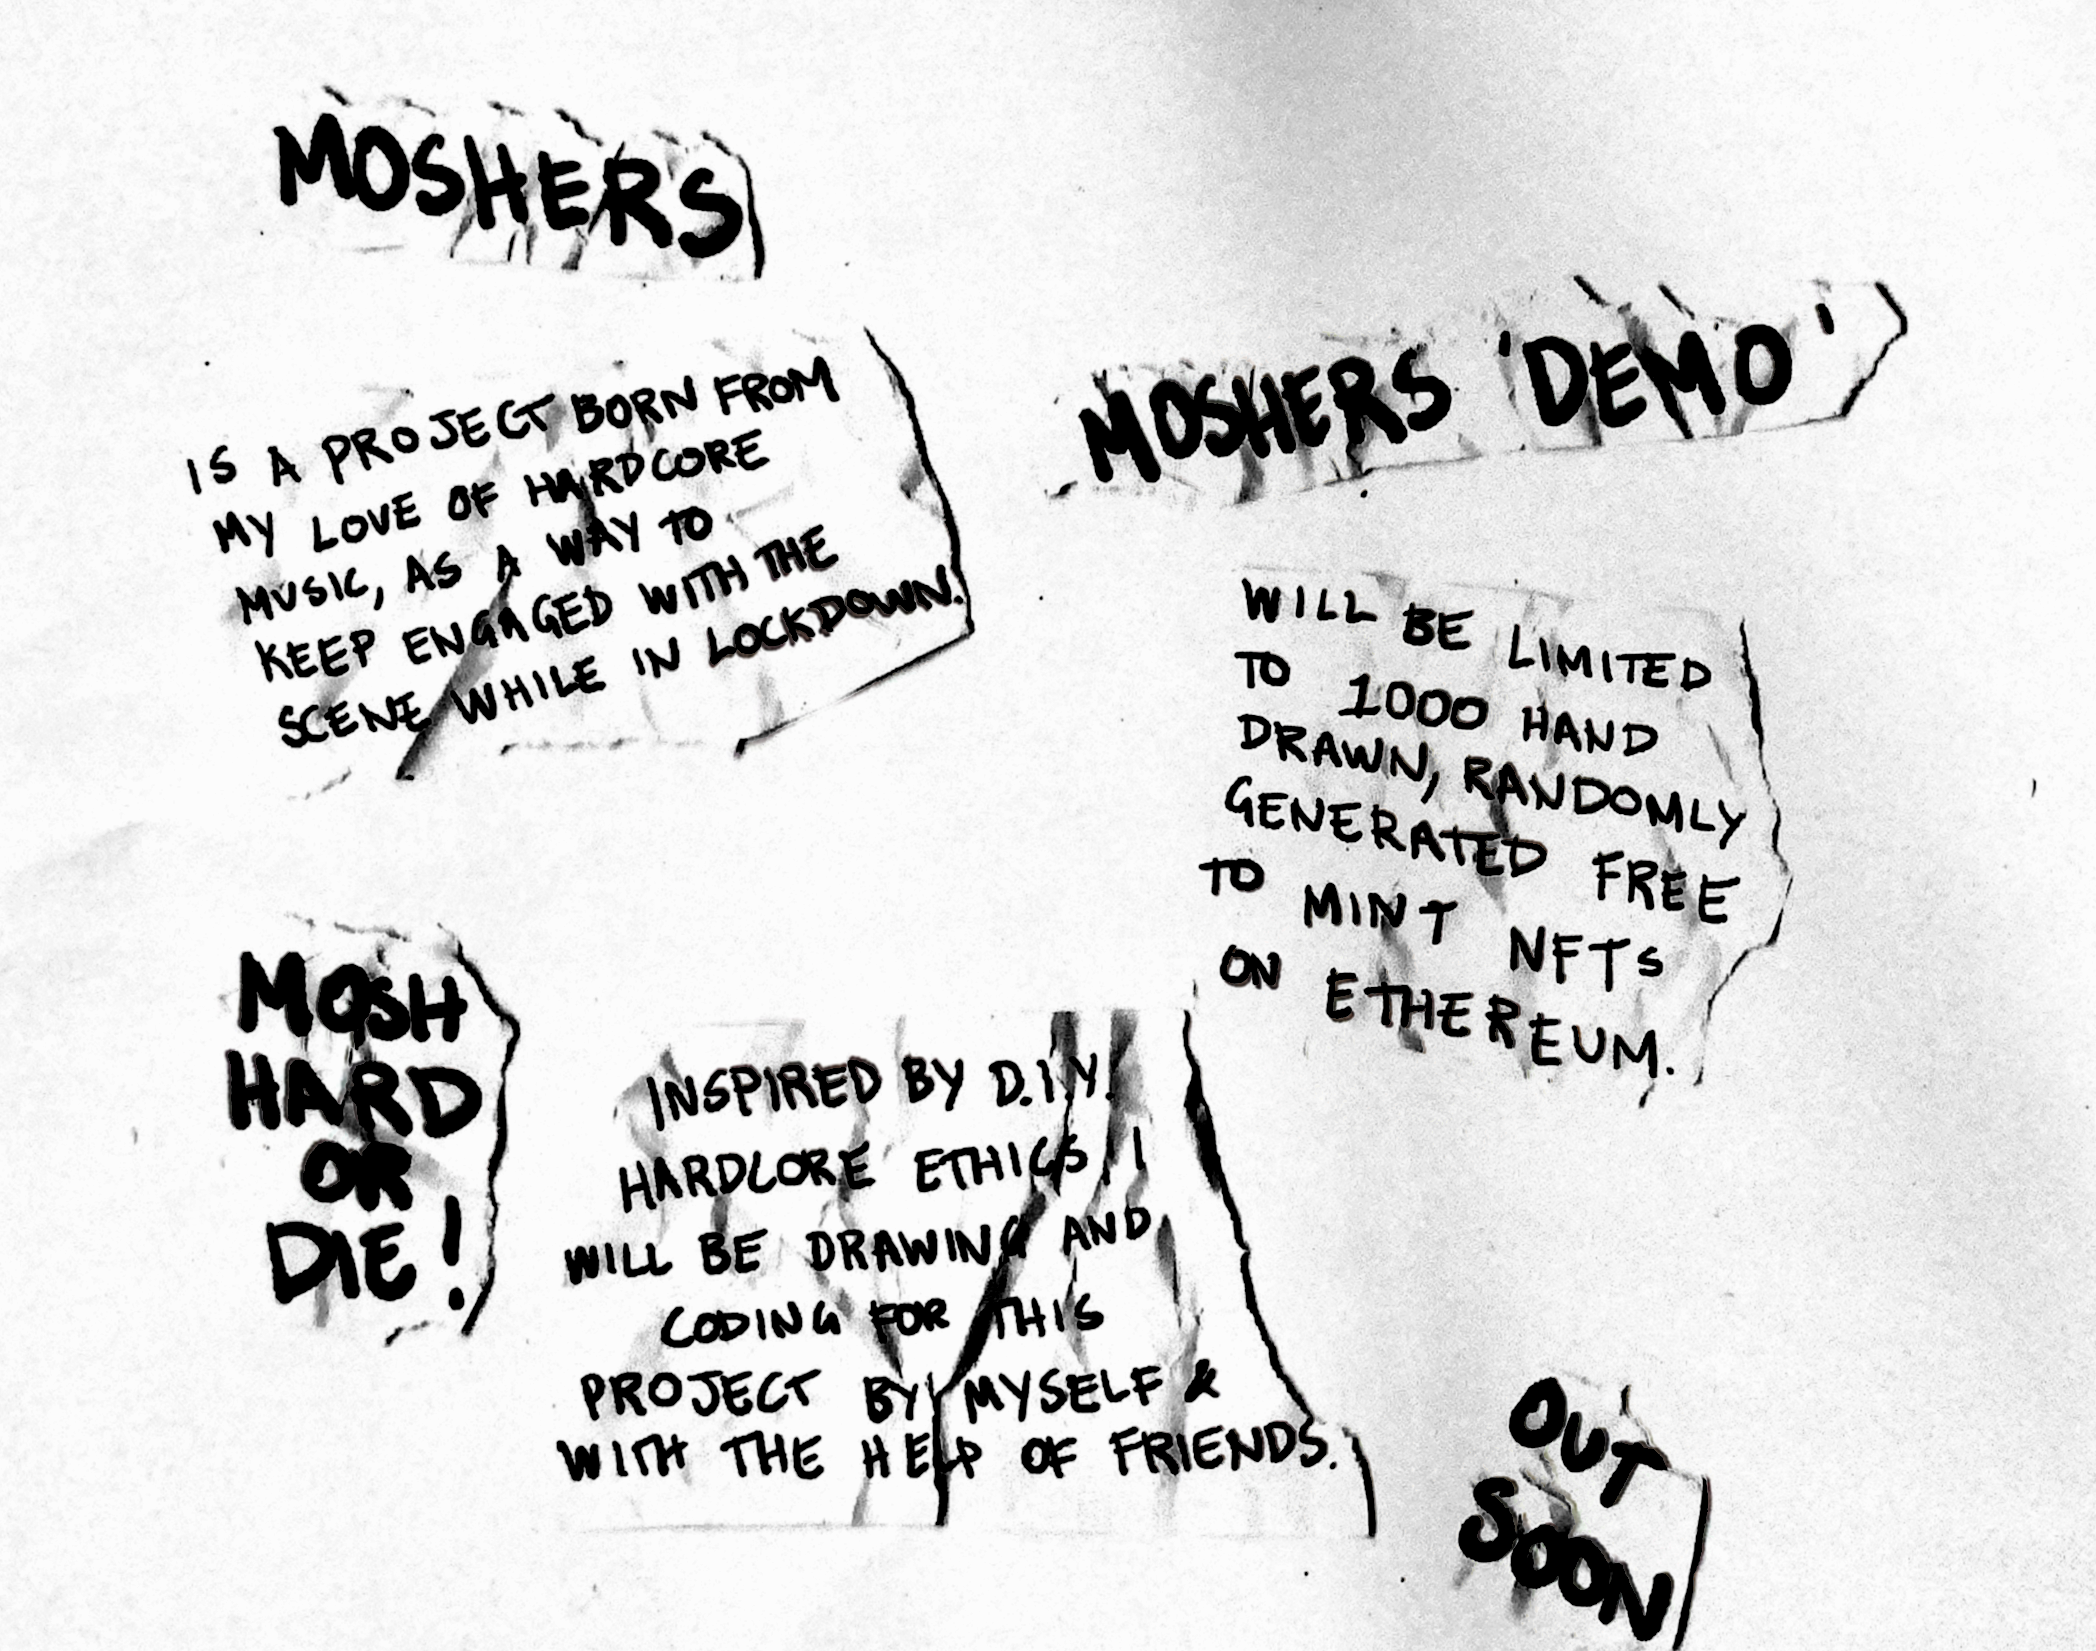 MOSHERS
IS A PROJECT BORN FROM
MY LOVE OF HARDCORE
MUSIC, AS A WAY TO
KEEP ENGAGED WITH THE
SCENE WHILE IN LOCKDOWN.
MOSHERS 'DEMO'
WILL BE LIMITED
TO 1000 HAND
DRAWN, RANDOMLY
GENERATED FREE
TO MINT NFTs
ON ETHEREUM.
MOSH
HARD
OR
DIE!
INSPIRED BY D.I.Y.
HARDCORE ETHICS, I
WILL BE DRAWING AND
CODING FOR THIS
PROJECT BY MYSELF &
WITH THE HELP OF FRIENDS.
OUT
SOON